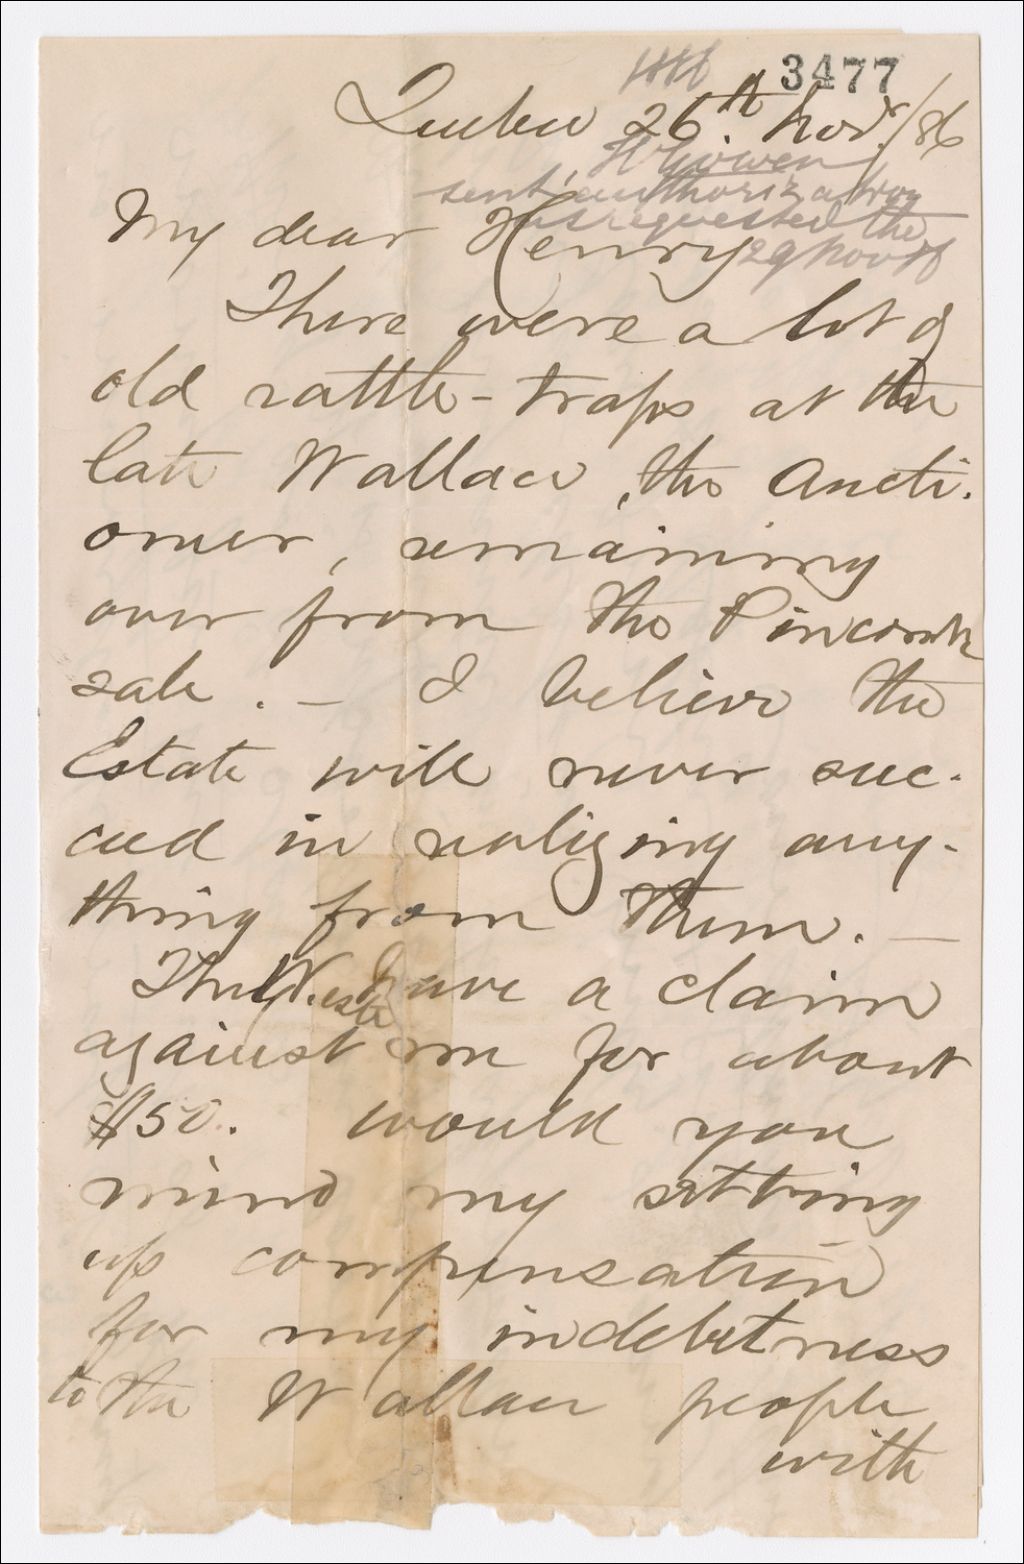 1886 3477
Quebec 26th Novr/86
H Gowen
sent authorization
as requested the
29 Nov 86
My dear Henry
There were a lot of
old rattle-traps at the
late Wallace, the Aucti-
oneer, remaining
over from the Pincomb
sale. - I believe the
Estate will never suc-
ceed in realizing any-
thing from them. -
The W. este have a claim
against me for about
$50. would you
mind my setting
up compensation
for my indebtness
to the Wallace people
with